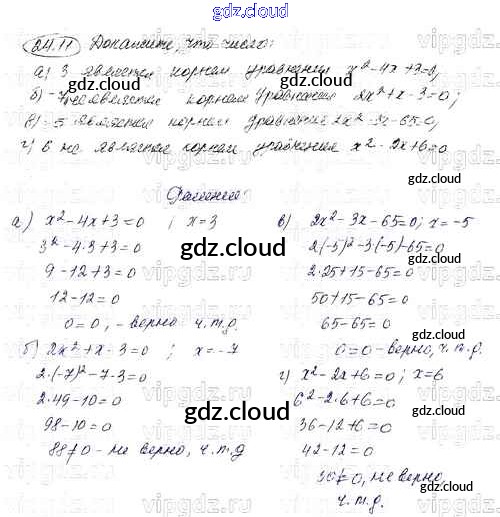 gdz.cloud
24.11 Докажите, что число:
а) 3 является корнем уравнения x²-4x+3=0,
б) -7 не является корнем уравнения 2x²+x-3=0;
в) -5 является корнем уравнения 2x²-3x-65=0,
г) 6 не является корнем уравнения x²-2x+6=0
Решение
а) x²-4x+3=0 ; x=3
3²-4·3+3=0
9-12+3=0
12-12=0
0=0, - верно ч.т.д.
б) 2x²+x-3=0 ; x=-7
2·(-7)²-7-3=0
2·49-10=0
98-10=0
88≠0 - не верно, ч.т.д
в) 2x²-3x-65=0; x=-5
2(-5)²-3(-5)-65=0
2·25+15-65=0
50+15-65=0
65-65=0
0=0 - верно, ч.т.д.
г) x²-2x+6=0; x=6
6²-2·6+6=0
36-12+6=0
42-12=0
30≠0, не верно,
ч.т.д.
gdz.cloud
gdz.cloud
gdz.cloud
gdz.cloud
gdz.cloud